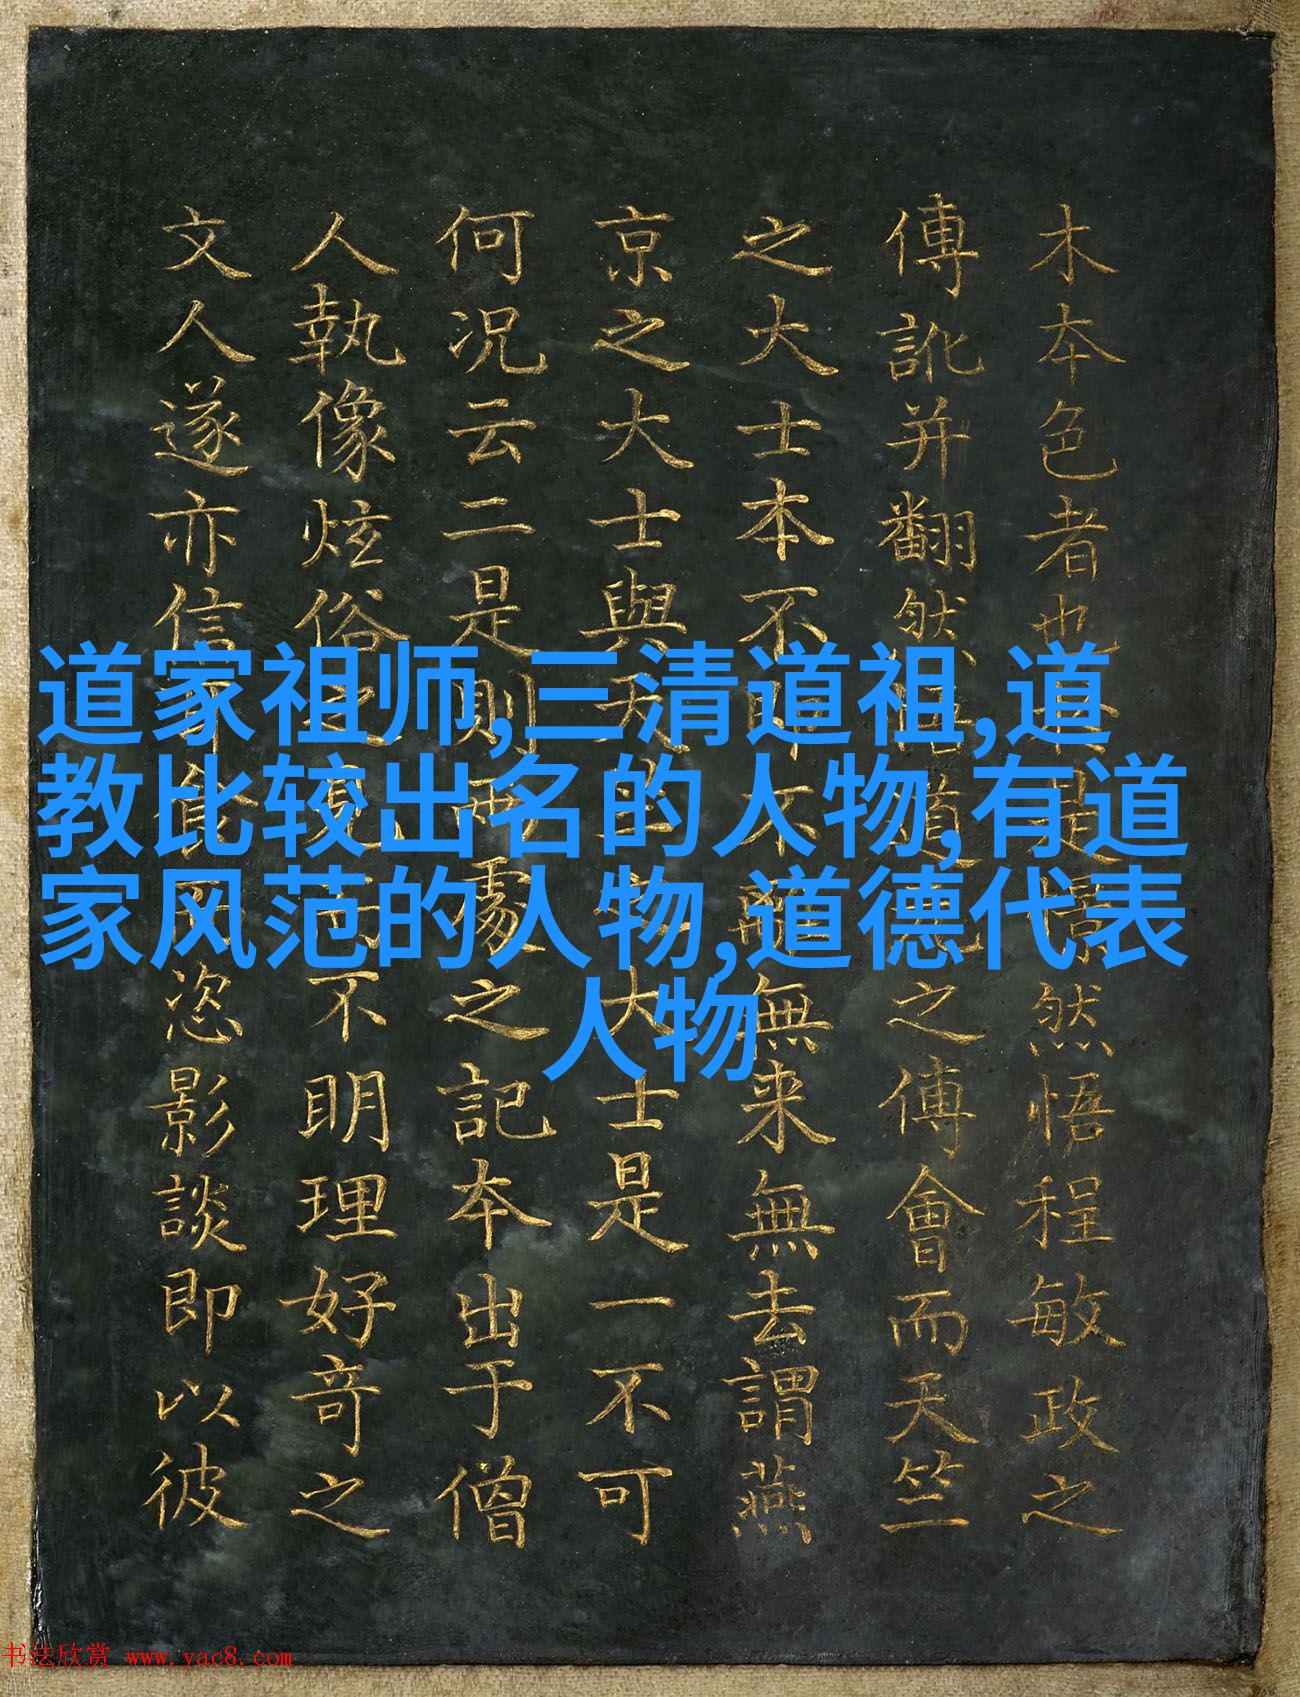 道家祖师,三清道祖,道
教比较出名的人物,有道
家风范的人物,道德代表
人物
木本色者也然悟程敏政之
傳訛并翻然之傅會而天竺
之大士本不無来無去謂燕
京之大士與大士是一不可
何况云二是則兩處之記本出于僧
人執像炫俗不明理好奇之
文人遂亦信恣影談即以彼
书法欣赏 www.yac8.com